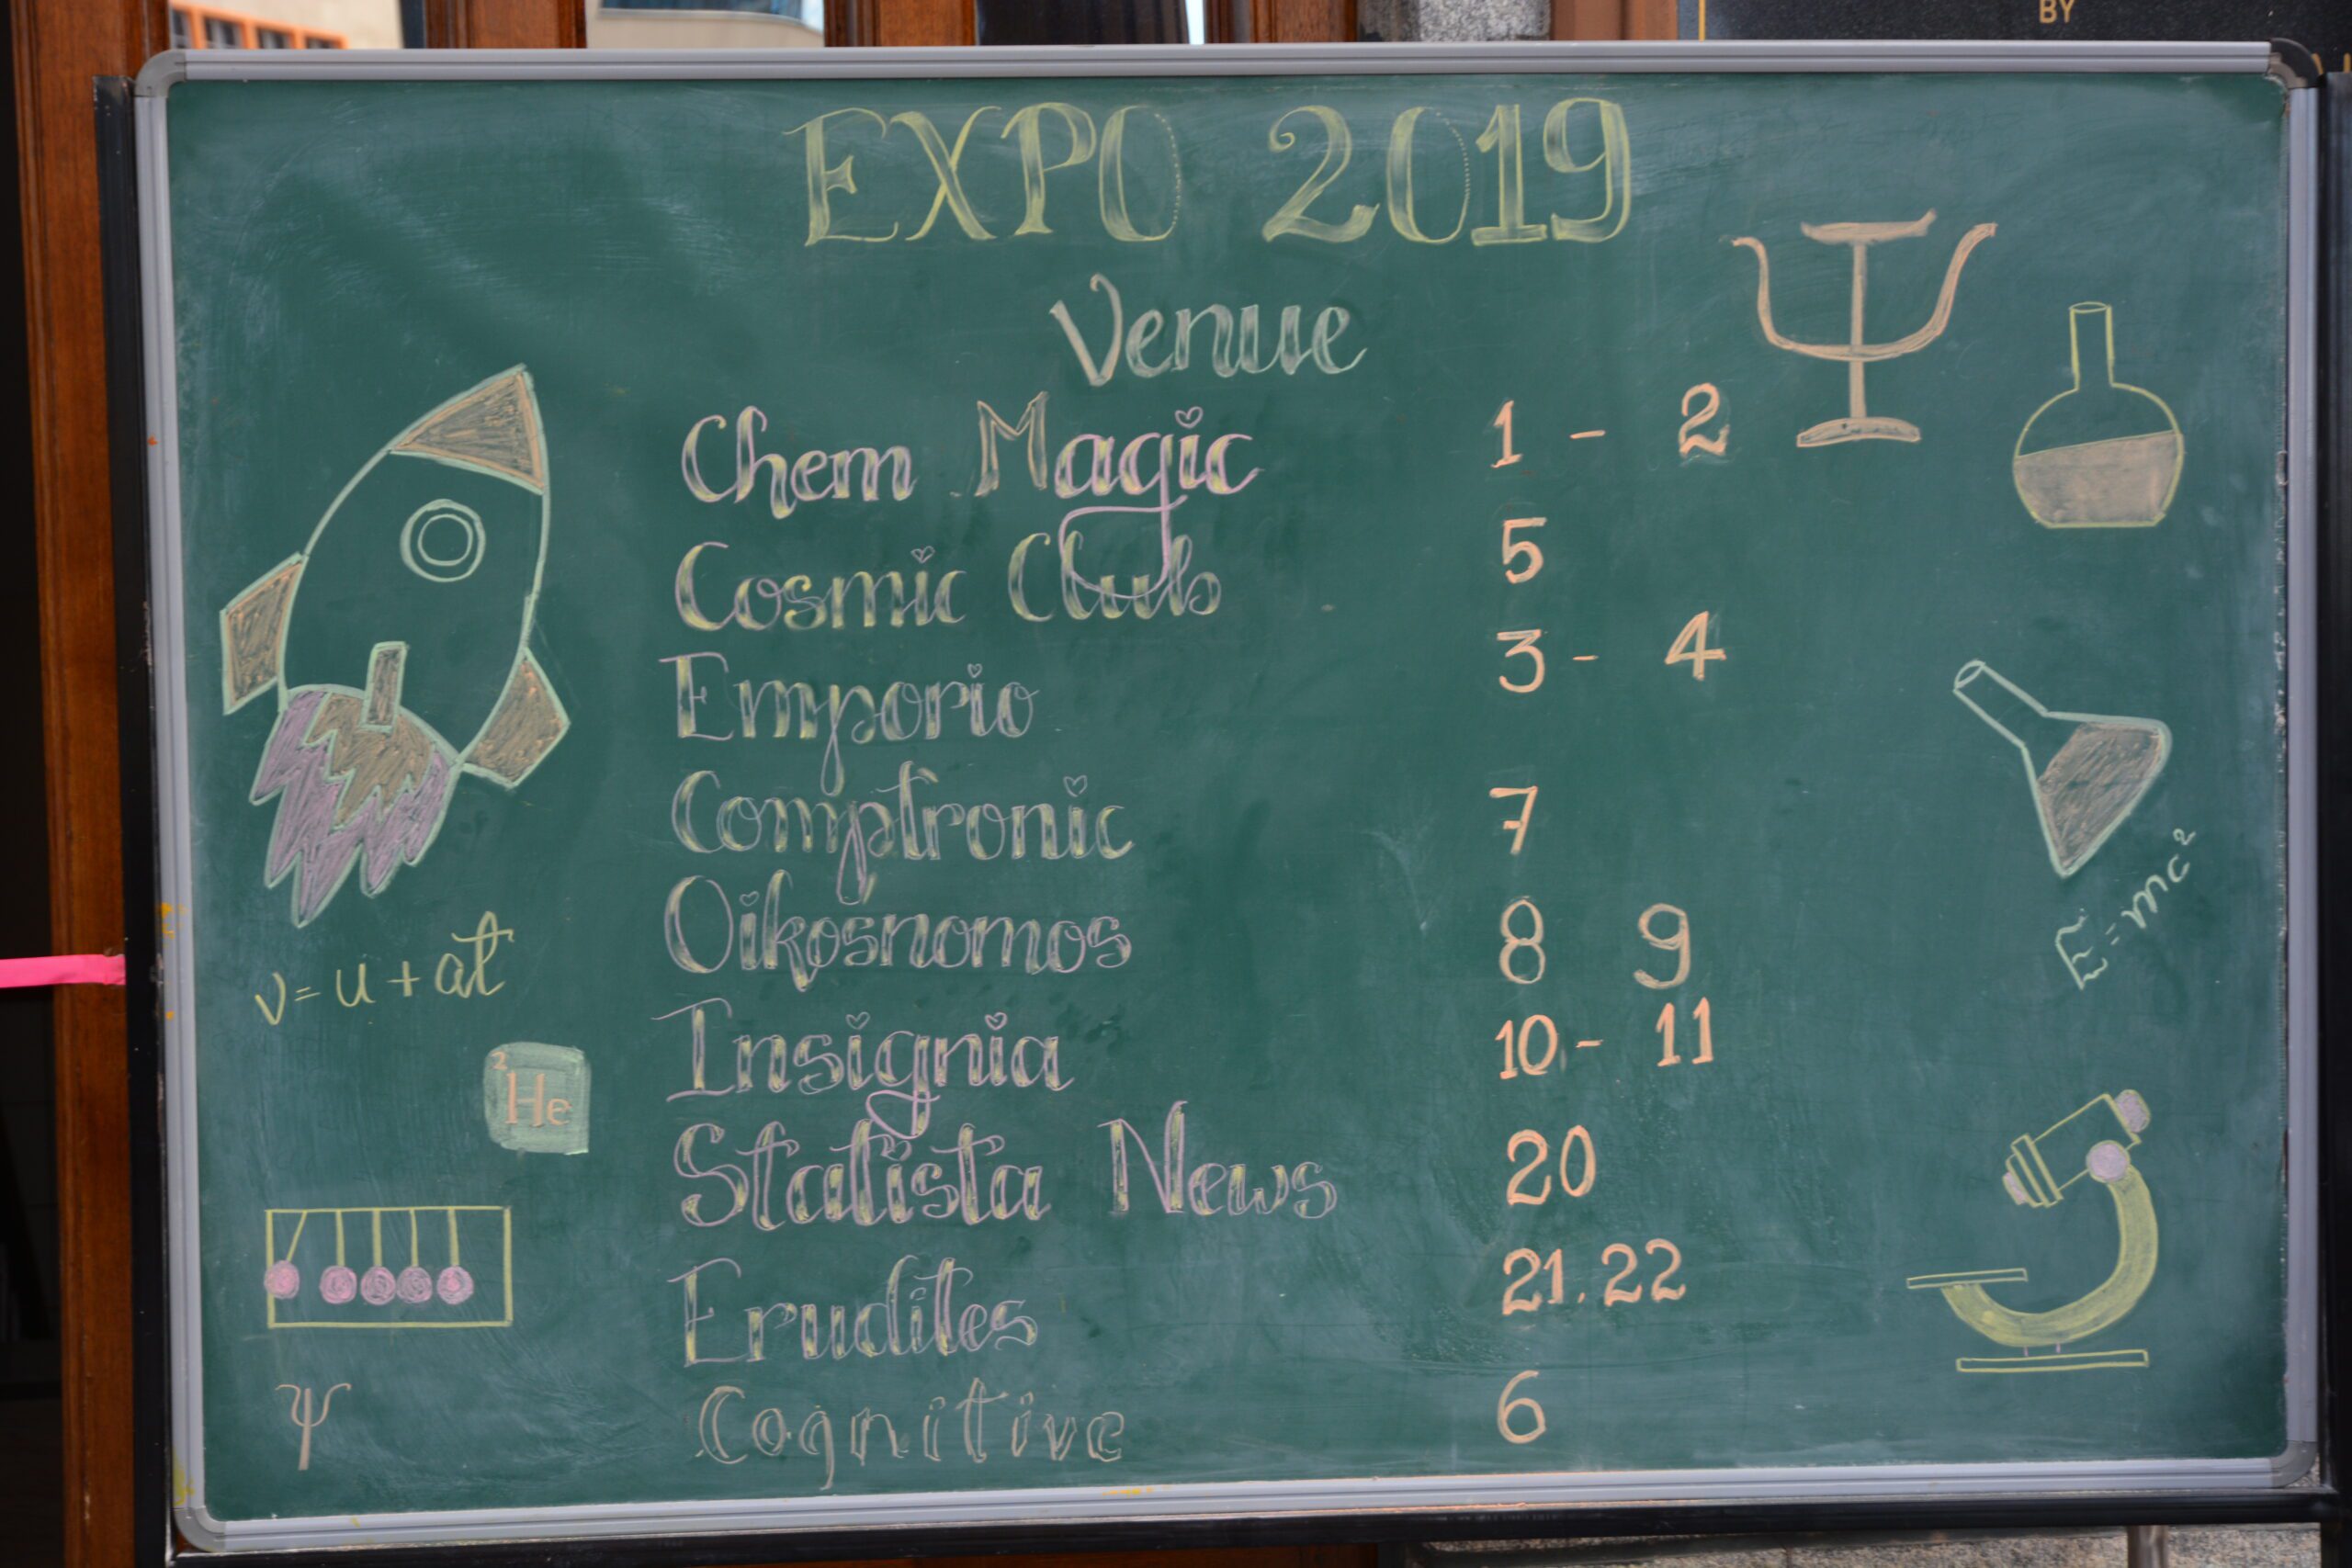 BY
EXPO 2019
Venue
Chem Magic 1 - 2
Cosmic Club 5
Emporio 3 - 4
Comptronic 7
Oikosnomos 8 9
Insignia 10 - 11
Statista News 20
Erudites 21.22
Cognitive 6
v = u + at
2
He
ψ
Ψ
E = mc²